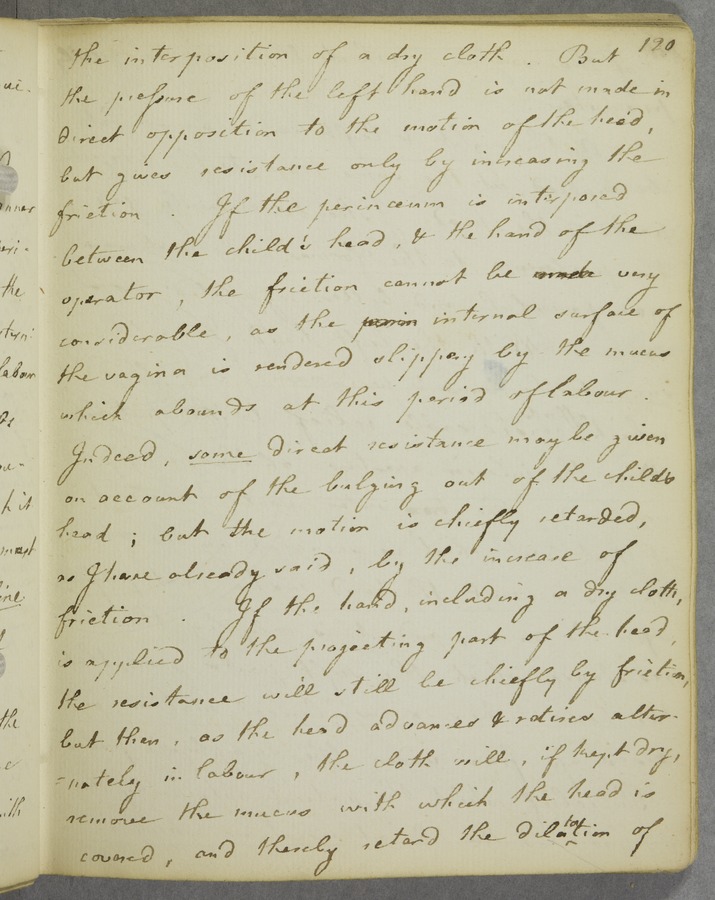 120
the interposition of a dry cloth . But
the pressure of the left hand is not made in
direct opposition to the motion of the head,
but gives resistance only by increasing the
friction . If the perinæum is interposed
between the child's head, & the hand of the
operator, the friction cannot be made very
considerable, as the perin internal surface of
the vagina is rendered slippery by the mucus
which abounds at this period of labour .
Indeed, some direct resistance may be given
on account of the bulging out of the child's
head ; but the motion is chiefly retarded,
as I have already said, by the increase of
friction . If the hand, including a dry cloth,
is applied to the projecting part of the head,
the resistance will still be chiefly by friction,
but then, as the head advances & retires alter-
-nately in labour, the cloth will, if kept dry,
remove the mucus with which the head is
covered, and thereby retard the dilatation of